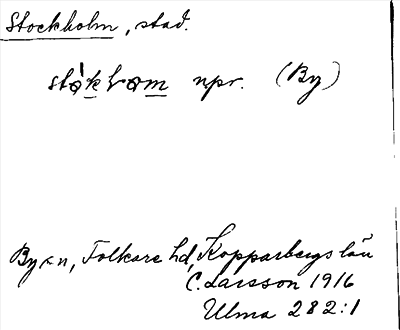 Stockholm, stad.
npr. (By)
By sn, Folkare hd, Kopparbergs län
C. Larsson 1916
Ulma 282:1